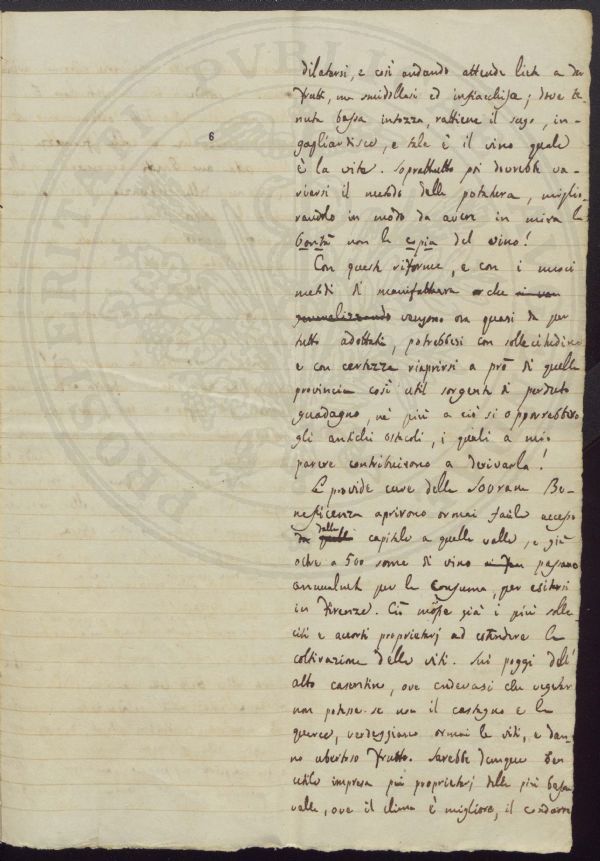 dilatarsi, e così andando attende lieta a dar
frutti, ma smidollasi ed infiacchisce; dove te-
nuta bassa intozza, rattiene il sugo, in-
6
gagliardisce, e tale è il vino quale
è la vite. Soprattutto poi dovrebbe va-
riarsi il metodo della potatura, miglio-
randolo in modo da avere in mira la
bontà non la copia del vino!
Con queste riforme, e con i nuovi
metodi di manifattura che si van
generalizzando vengono ora quasi da per
tutto adottati, potrebbesi con sollecitudine
e con certezza riaprirsi a prò di quella
provincia così util sorgente di perduto
guadagno, nè più a ciò si opporrebbero
gli antichi ostacoli, i quali a mio
parere contribuirono a
Le provide cure della Sovrana Be-
neficenza aprirono ormai facile accesso
dalla capitale a quelle valle, e già
oltre a 500 some di vino passano
annualmte per la Consuma, per esitarsi
in Firenze. Ciò mosse già i più solle-
citi e accorti proprietarj ad estendere la
coltivazione delle viti. Sui poggi dell'
alto casentino, ove credevasi che vegetar
non potesse se non il castagno e la
querce, verdeggiano ormai le viti, e dan-
no ubertoso frutto. Sarebbe dunque ben
utile impresa pei proprietarj delle più basse
valli, ove il clima è migliore, il condurre